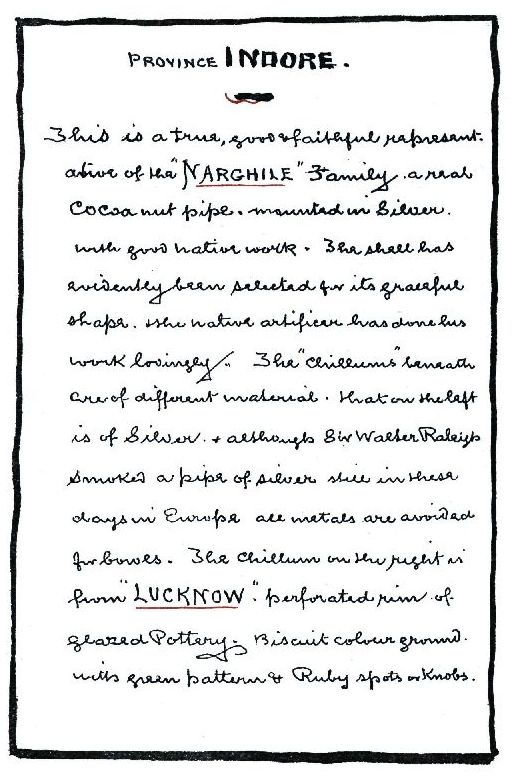 PROVINCE INDORE.
This is a true, good & faithful represent-
ative of the "NARGHILE" Family. a real
Cocoa nut pipe. mounted in Silver.
with good native work. The shell has
evidently been selected for its graceful
shape. & the native artificer has done his
work lovingly. The "chillums" beneath
are of different material. that on the left
is of Silver. & although Sir Walter Raleigh
smoked a pipe of silver still in these
days in Europe all metals are avoided
for bowls. The Chillum on the right is
from "LUCKNOW". perforated rim of
glazed Pottery. Biscuit colour ground.
with green pattern & Ruby spots or Knobs.